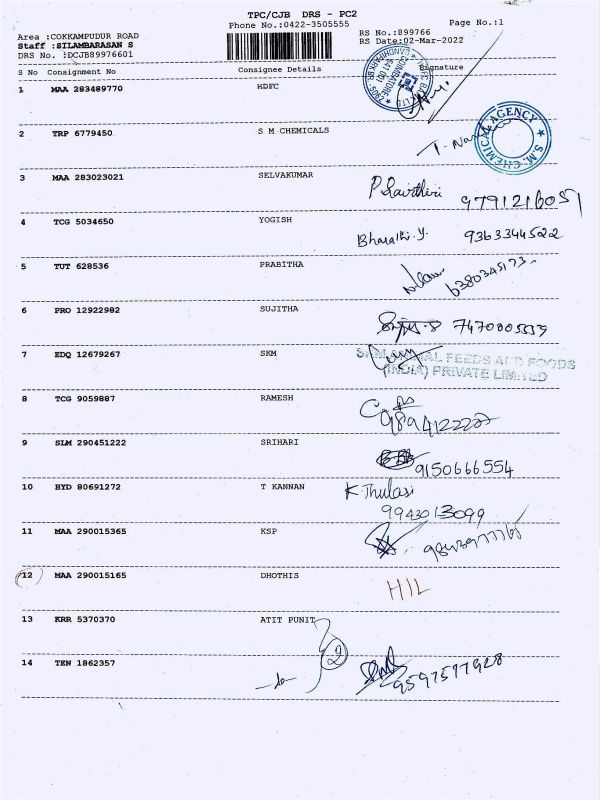 TPC/CJB DRS - PC2
Phone No.:0422-3505555
Page No.:1
Area :COKKAMPUDUR ROAD
Staff :SILAMBARASAN S
DRS No. :DCJB89976601
RS No.:899766
RS Date:02-Mar-2022
S No Consignment No Consignee Details Signature
1 MAA 283489770 HDFC
2 TRP 6779450 S M CHEMICALS
T. Na
S.M. CHEMICAL AGENCY
3 MAA 283023021 SELVAKUMAR
P. Savithiri 9791216051
4 TCG 5034650 YOGISH
Bharathi.y. 9363344522
5 TUT 628536 PRABITHA
6380345173
6 PRO 12922982 SUJITHA
7470005559
7 EDQ 12679267 SKM
SKM ANIMAL FEEDS AND FOODS
(INDIA) PRIVATE LIMITED
8 TCG 9059887 RAMESH
9894122227
9 SLM 290451222 SRIHARI
9150666554
10 HYD 80691272 T KANNAN
K. Thulasi
9943013099
11 MAA 290015365 KSP
12 MAA 290015165 DHOTHIS
HIL
13 KRR 5370370 ATIT PUNIT
2
14 TEN 1862357
9597577928